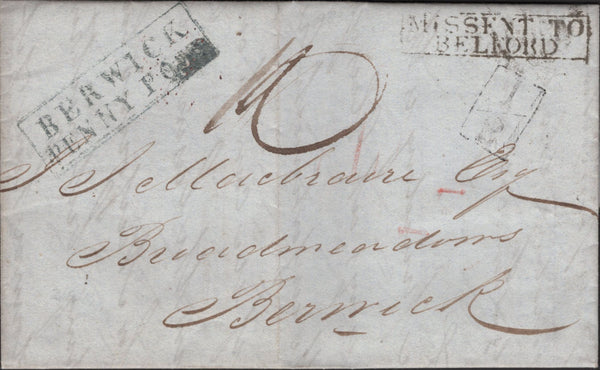 BERWICK
PENNY POST
MISSENT TO
BELFORD
1
2
10
J Macbraire Esq
Broadmeadows
Berwick